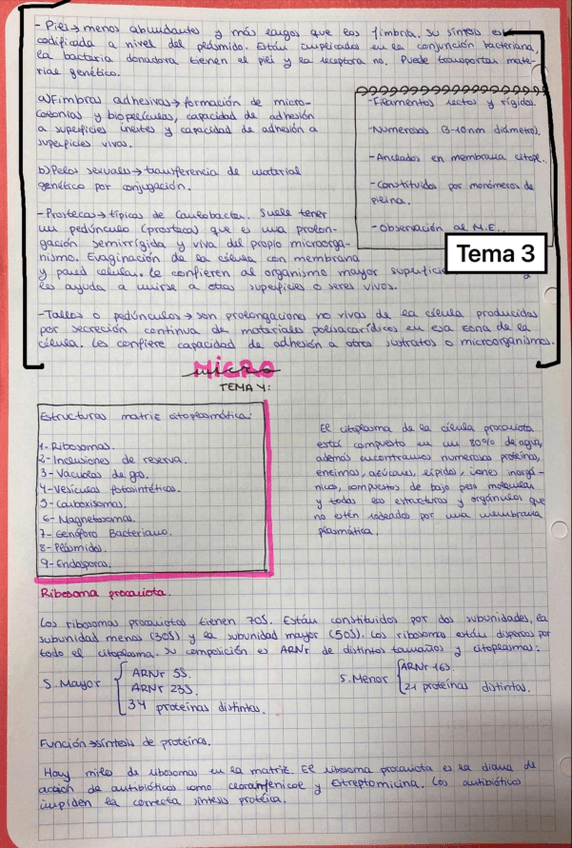 - Pili → menos abundantes y más largos que las fimbria. Su síntesis es
codificada a nivel del plásmido. Están implicados en la conjunción bacteriana,
la bacteria donadora tienen el pili y la receptora no. Puede transportar mate-
rial genético.
a) Fimbras adhesivas → formación de micro-
colonias y biopelículas, capacidad de adhesión
a superficies inertes y capacidad de adhesión a
superficies vivas.
b) Pelos sexuales → transferencia de material
genético por conjugación.
- Filamentos rectos y rígidos.
- Numerosos (3-10nm diámetro).
- Anclados en membrana citopl.
- Constituidos por monómeros de
pilina.
- Observación al M.E.
Tema 3
- Prostecas → típicas de Caulobacter. Suele tener
un pedúnculo (prosteca) que es una prolon-
gación semirrígida y viva del propio microorga-
nismo. Evaginación de la célula con membrana
y pared celular. Le confieren al organismo mayor superfici
les ayuda a unirse a otras superficies o seres vivos.
- Tallos o pedúnculos → son prolongaciones no vivas de la célula producidas
por secreción continua de materiales polisacarídicos en esa zona de la
célula. Les confiere capacidad de adhesión a otros sustratos o microorganismos.
MICRO
micro
TEMA 4:
Estructuras matriz citoplasmática:
1- Ribosomas.
2- Inclusiones de reserva.
3- Vacuolas de gas.
4- Vesículas fotosintéticas.
5- Carboxisomas.
6- Magnetosomas.
7- Genóforo Bacteriano.
8- Plásmidos.
9- Endospora.
El citoplasma de la célula procariota
está compuesto en un 80% de agua,
además encontramos numerosas proteínas,
enzimas, azúcares, lípidos, iones inorgá-
nicos, compuestos de bajo peso molecular
y todas las estructuras y orgánulos que
no estén rodeados por una membrana
plasmática.
Ribosoma procariota.
Los ribosomas procariotas tienen 70S. Están constituidos por dos subunidades, la
subunidad menor (30S) y la subunidad mayor (50S). Los ribosomas están dispersos por
todo el citoplasma. Su composición es ARNr de distintos tamaños y citoplasmas:
S. Mayor
ARNr 5S.
ARNr 23S.
34 proteínas distintas.
S. Menor
ARNr 16S.
21 proteínas distintas.
Función → síntesis de proteína.
Hay miles de ribosomas en la matriz. El ribosoma procariota es la diana de
acción de antibióticos como cloranfenicol y Estreptomicina. Los antibióticos
impiden la correcta síntesis proteica.